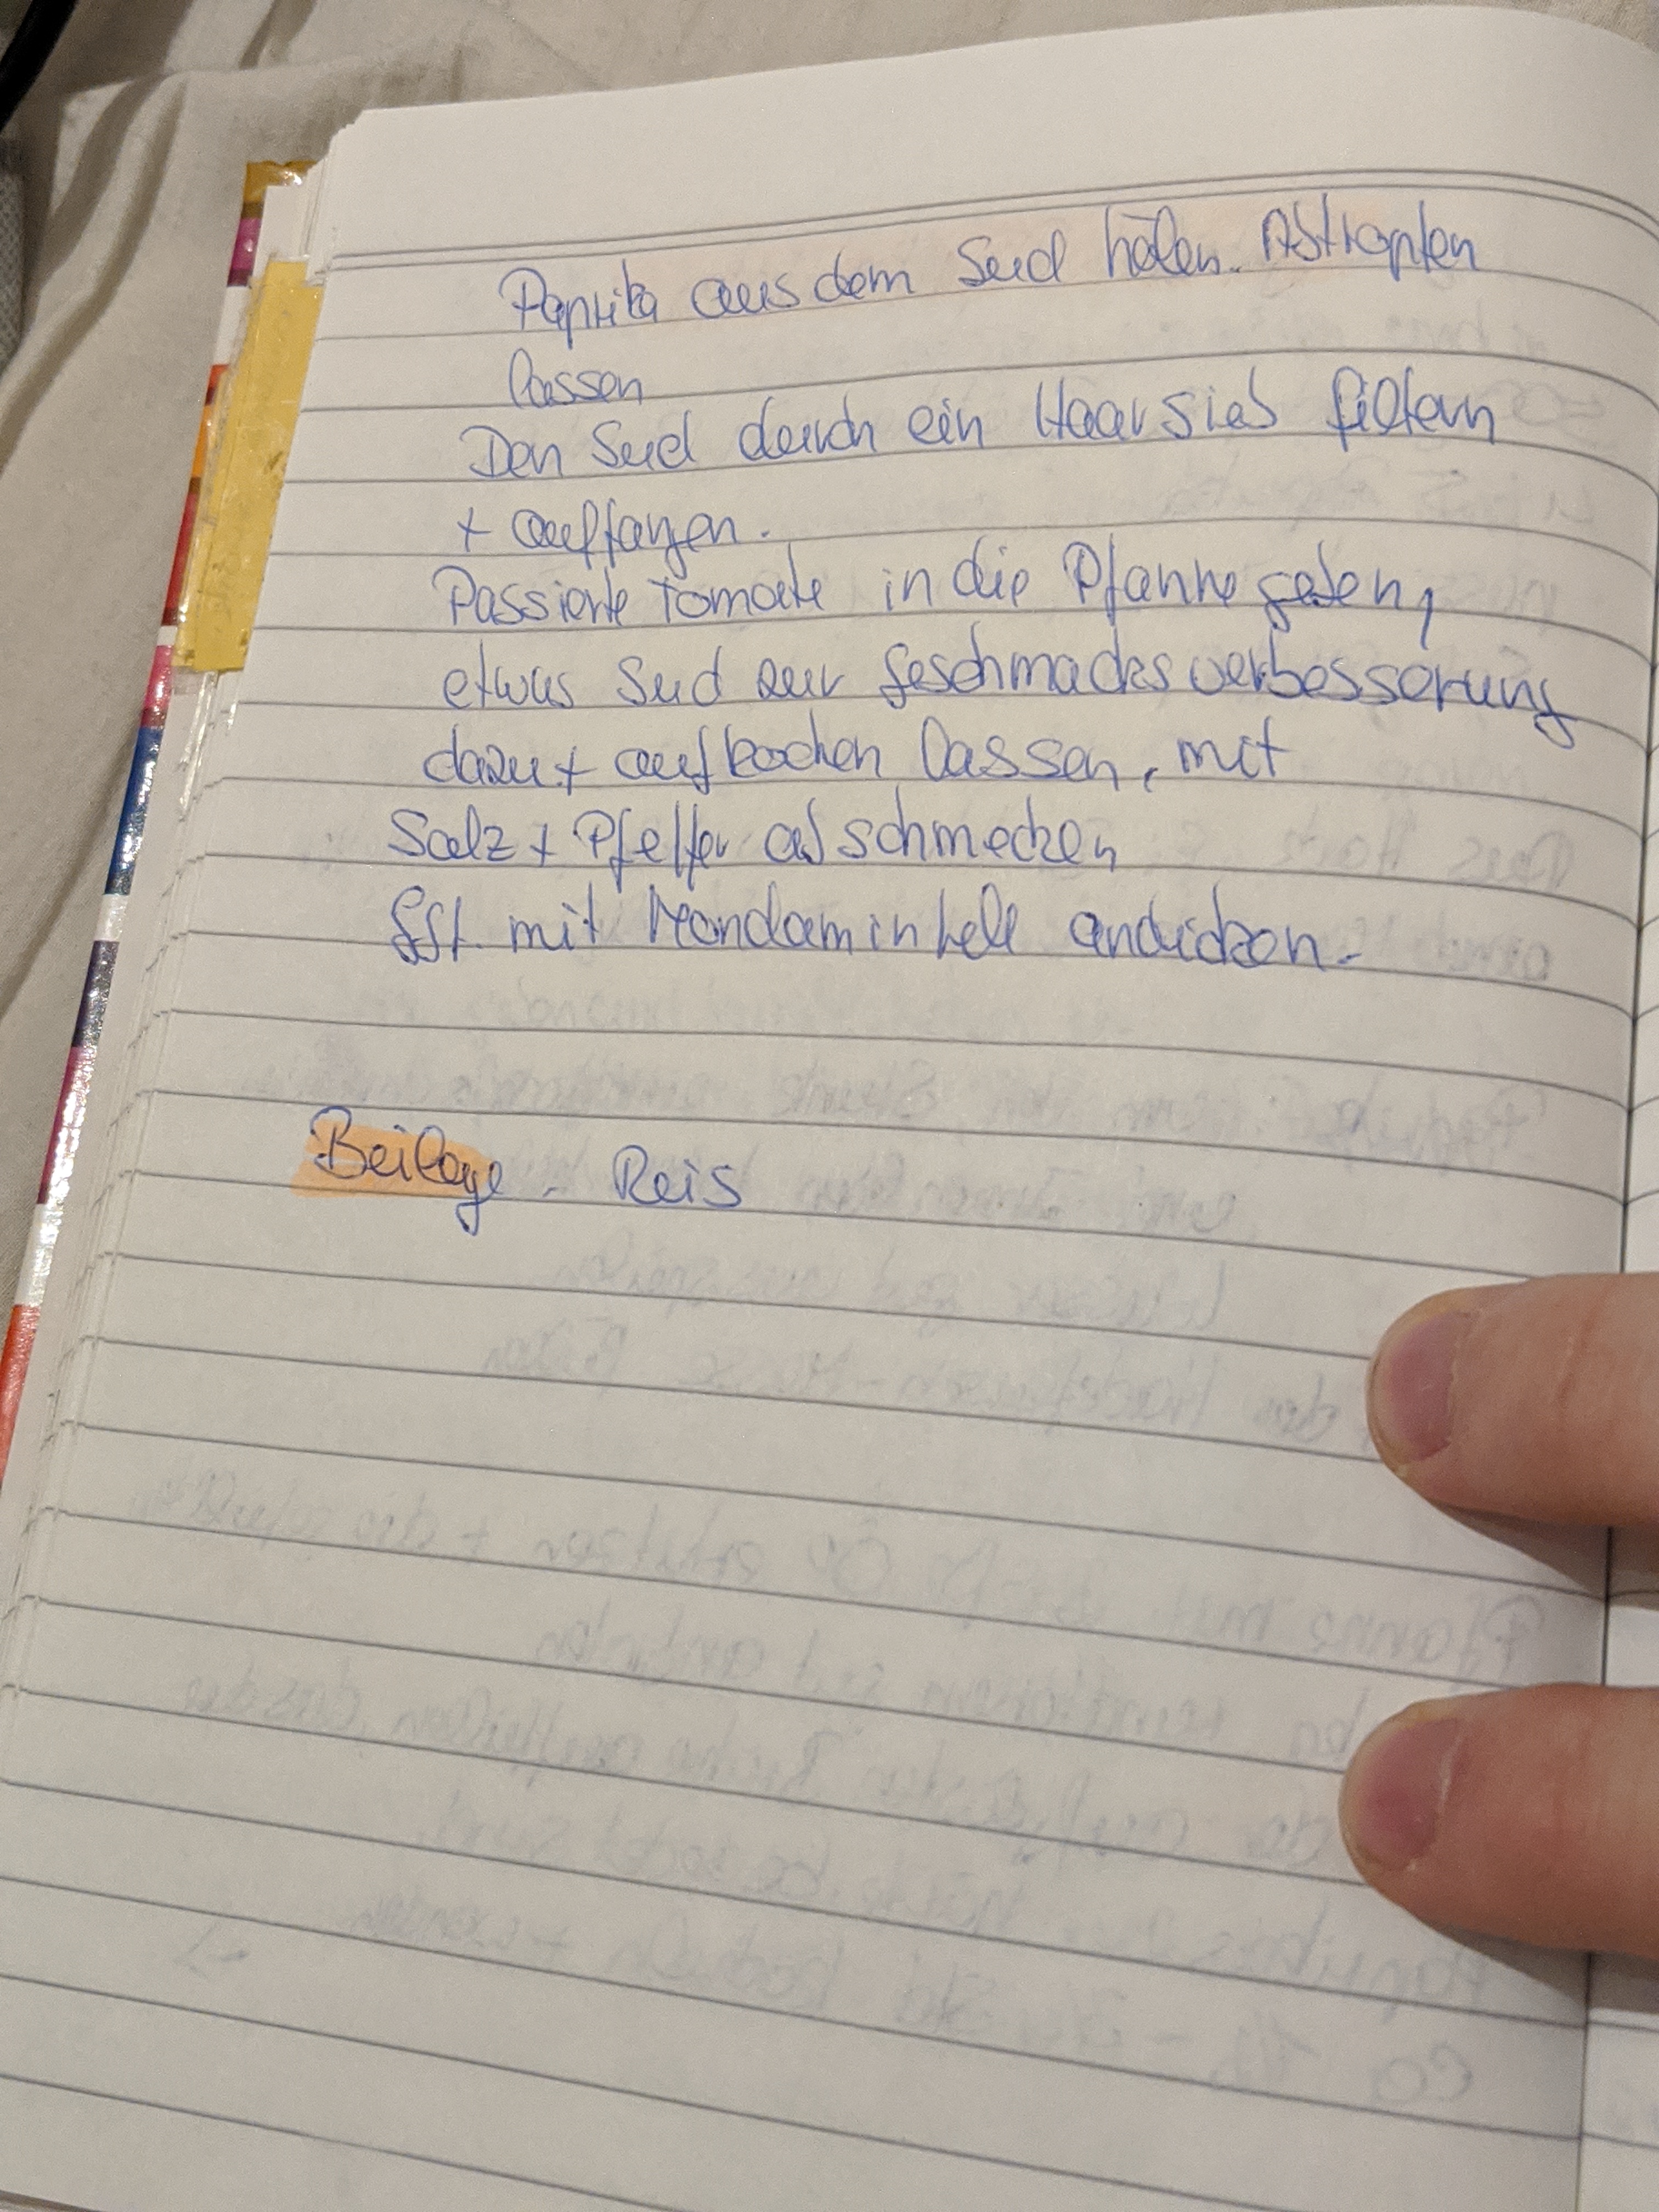 Paprika aus dem Sud holen. Abtropfen
lassen
Den Sud durch ein Haarsieb filtern
+ auffangen.
Passierte Tomate in die Pfanne geben,
etwas Sud zur Geschmacksverbesserung
dazu + aufkochen lassen, mit
Salz + Pfeffer abschmecken
Ggf. mit Mondamin hell andicken.
Beilage - Reis